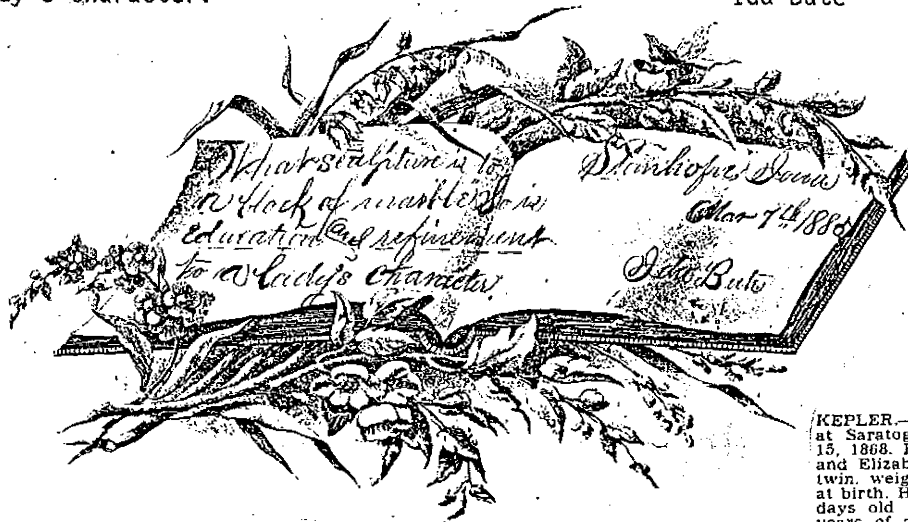 character.
Ida Bute
What sculpture is to
a block of marble So is
Education and refinement
to a lady's character
Stanhope Iowa
Mar 7th
Ida Bute
KEPLER.—
at Saratog
15, 1868.
and Elizab
twin. weig
at birth. H
days old
years of